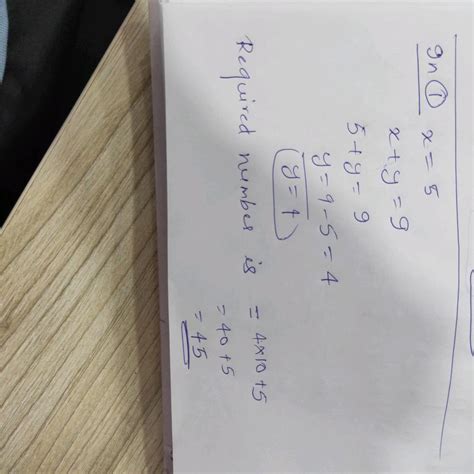 In ① x = 5
x + y = 9
5 + y = 9
y = 9 - 5 = 4
y = 4
Required number is = 4×10+5
= 40+5
= 45